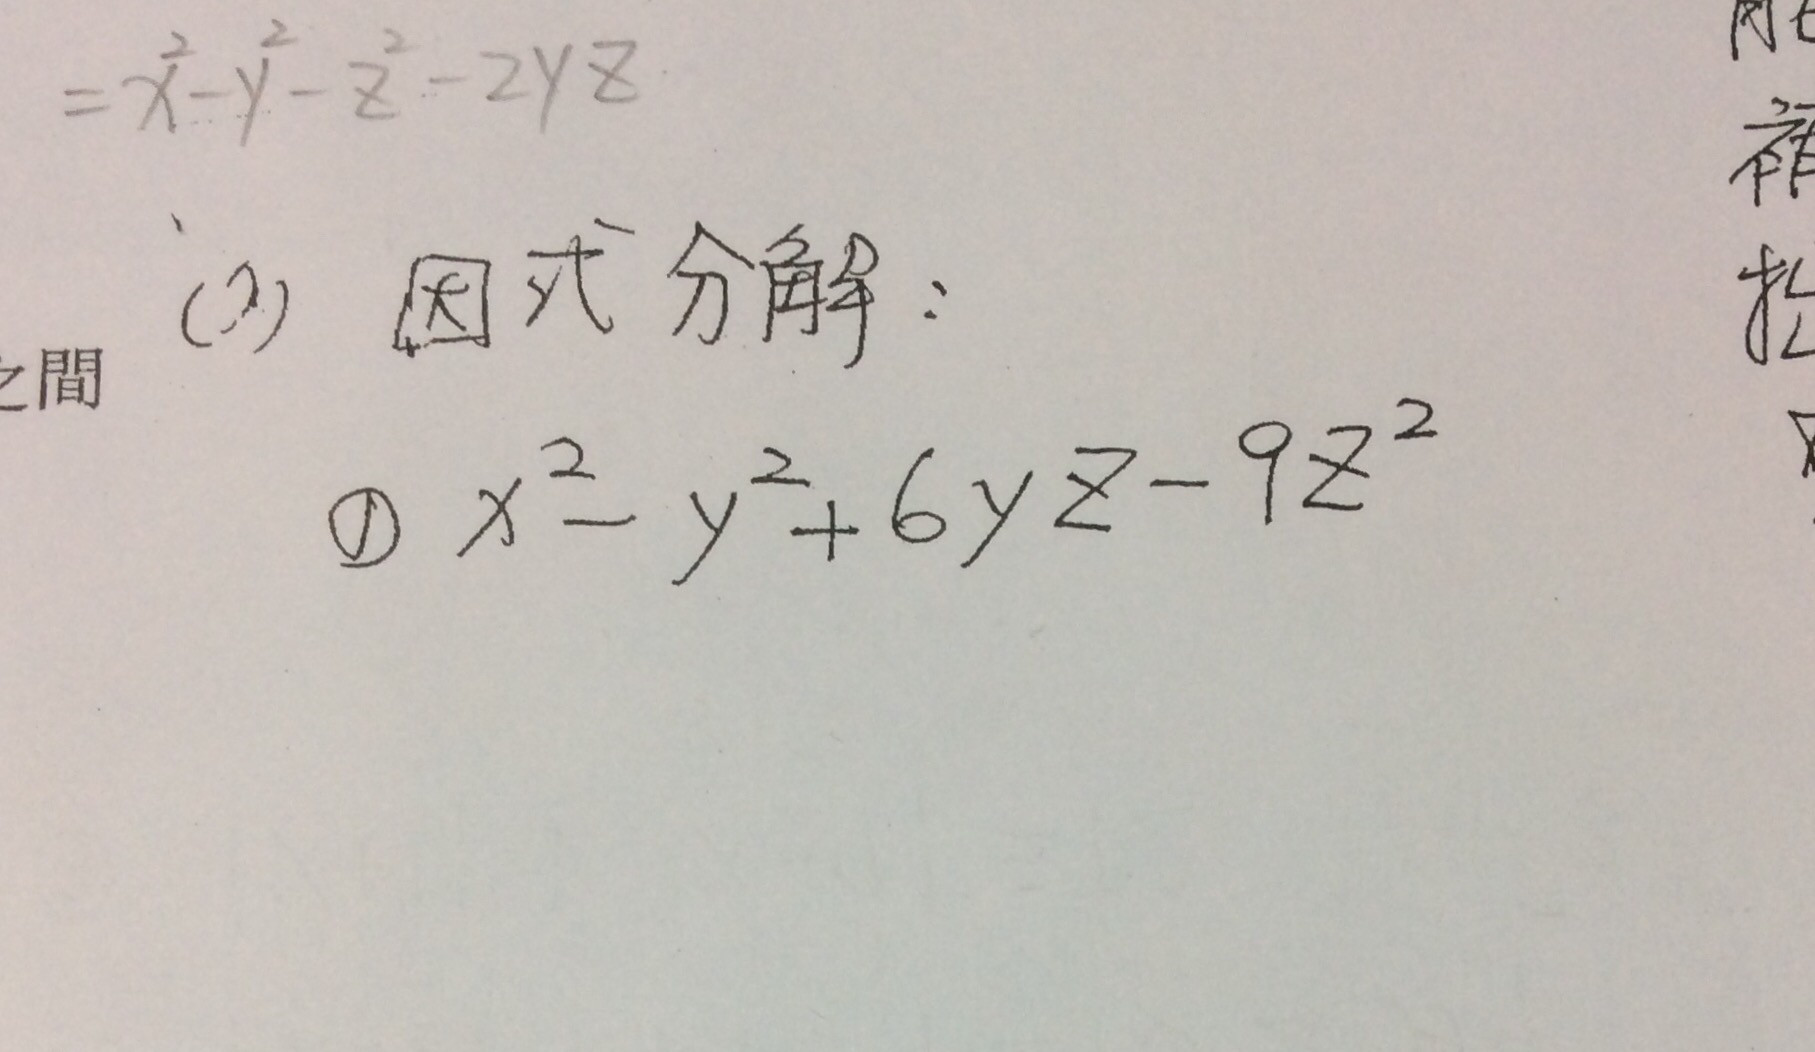 =x²-y²-z²-2yz
(2) 因式分解：
之間
① x²-y²+6yz-9z²